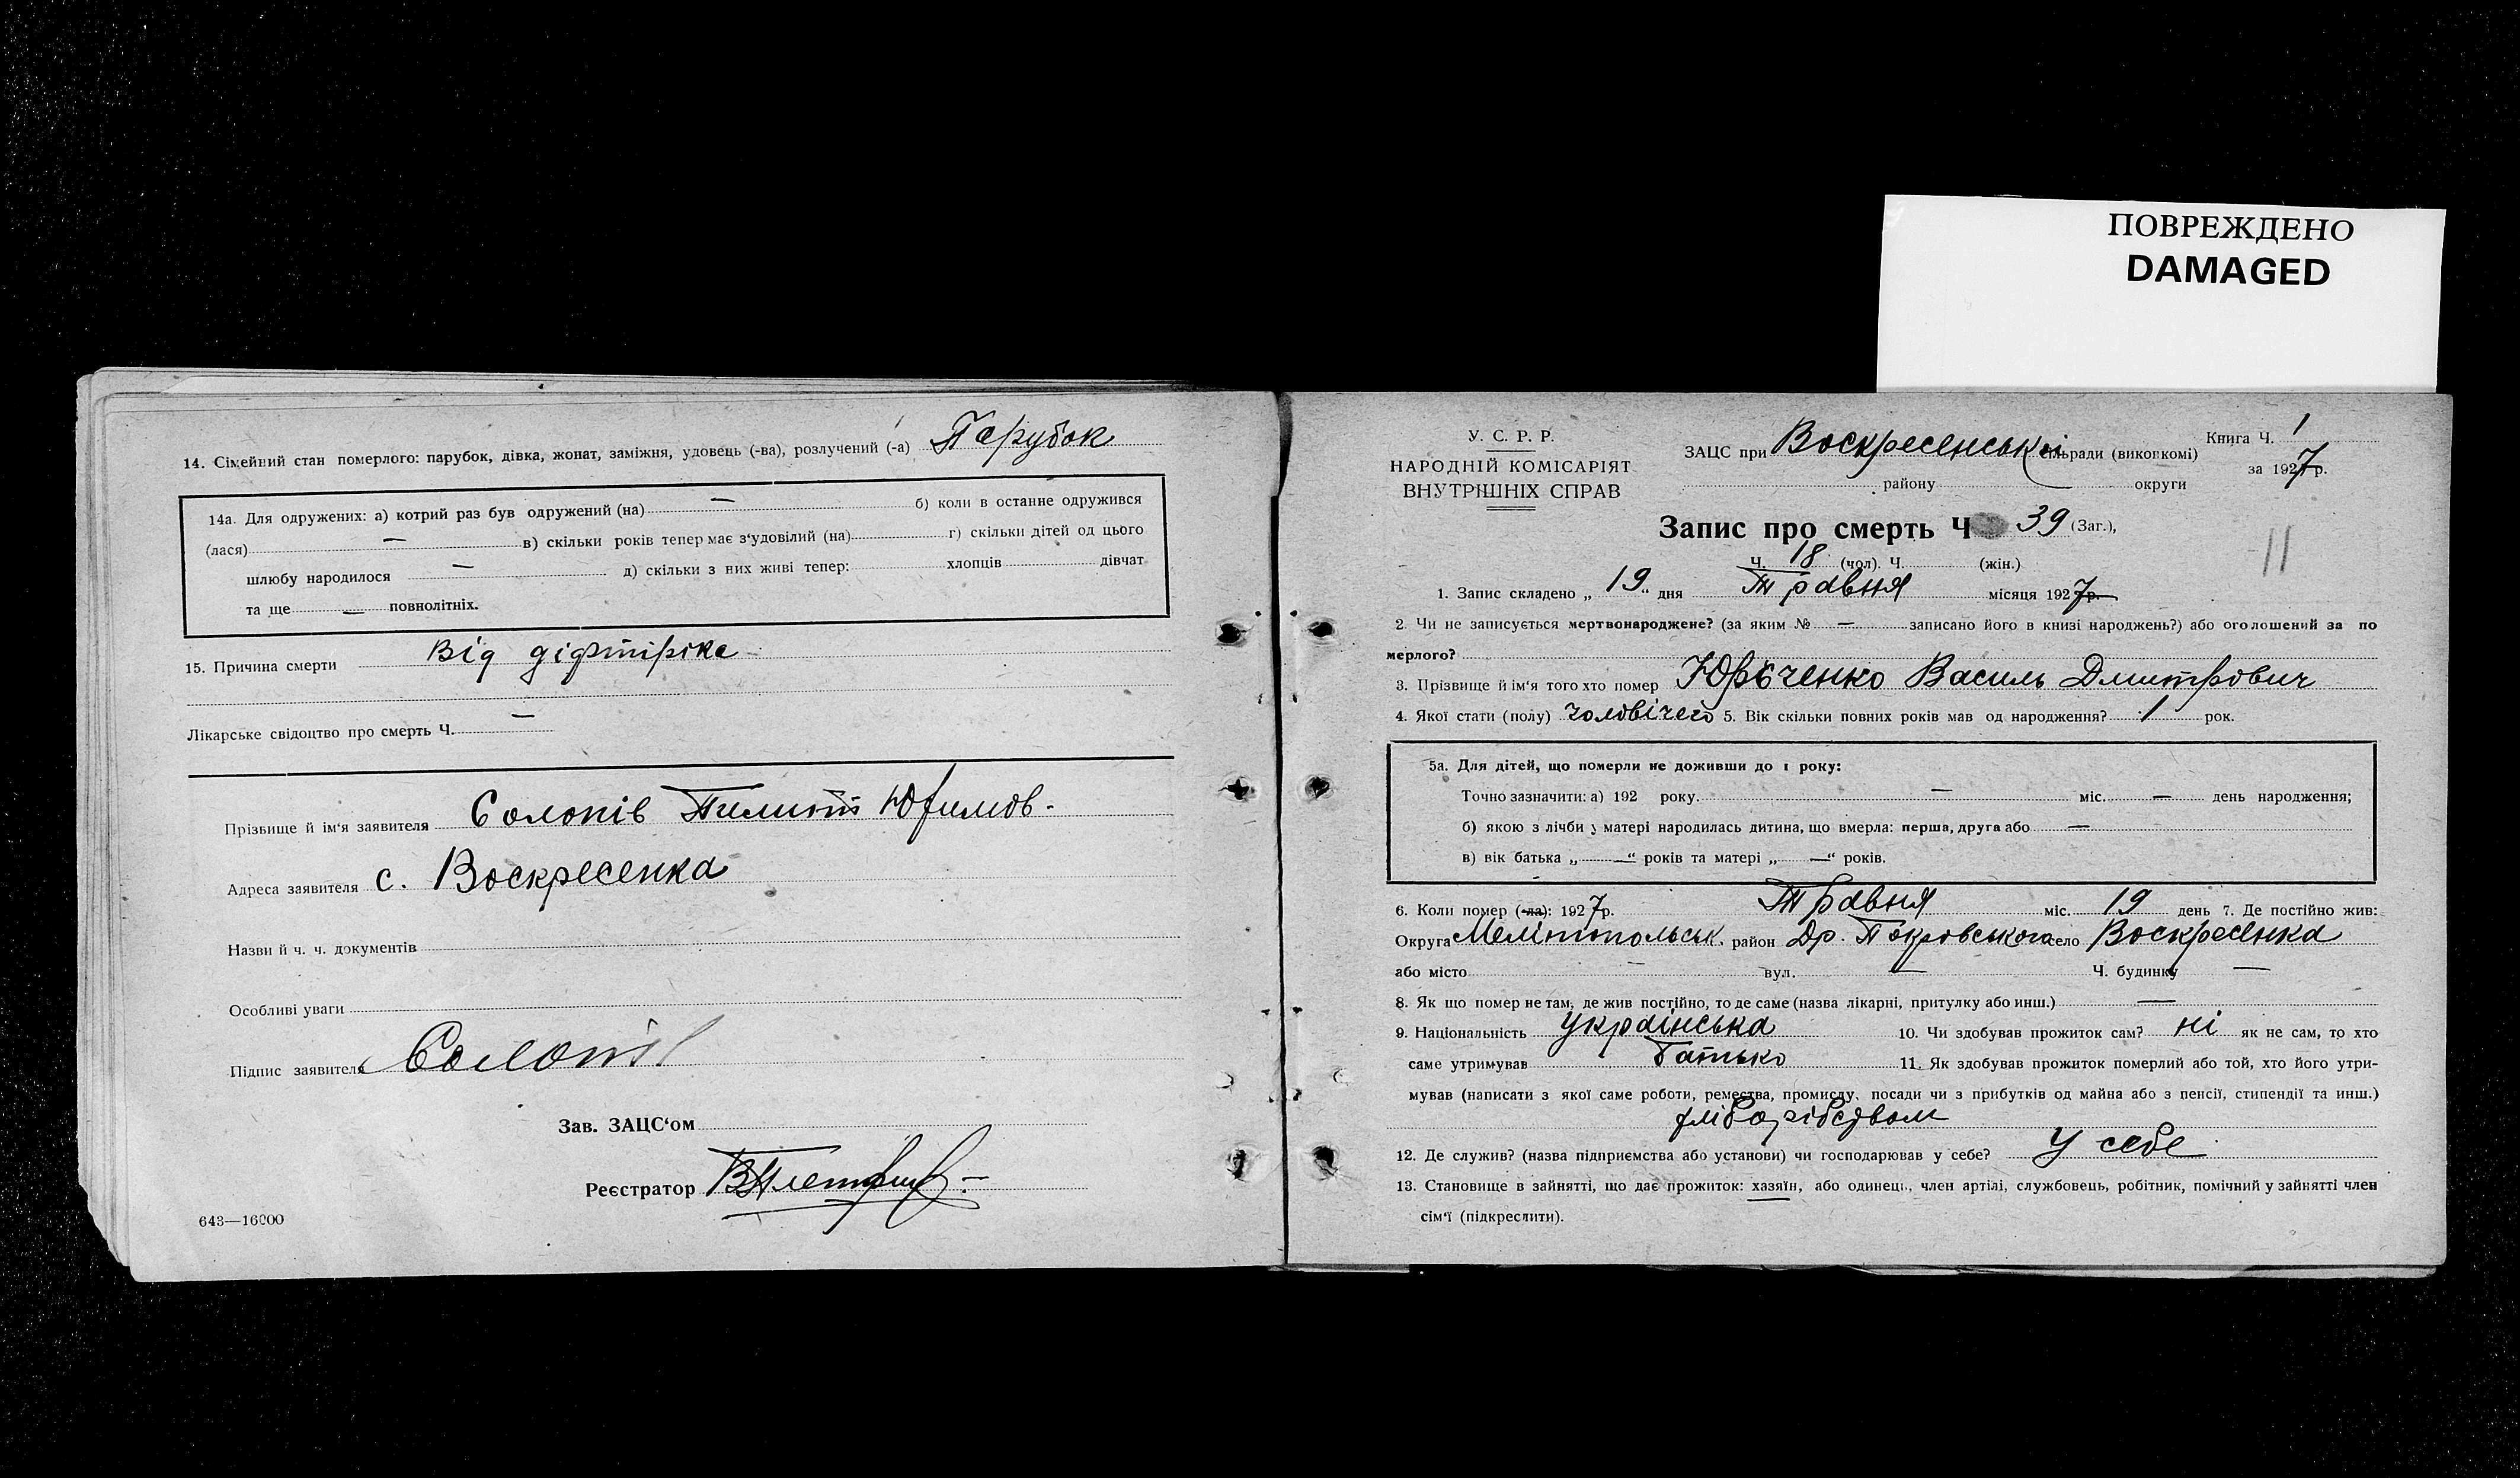 ПОВРЕЖДЕНО
DAMAGED
14. Сімейний стан померлого: парубок, дівка, жонат, заміжня, удовець (-ва), розлучений (-а) Парубок
14а. Для одружених: а) котрий раз був одружений (на) — б) коли в останнє одружився
(лася) — в) скільки років тепер має з'удовілий (на) г) скільки дітей од цього
шлюбу народилося — д) скільки з них живі тепер: хлопців дівчат
та ще — повнолітніх.
15. Причина смерти Від діфтіріка
Лікарське свідоцтво про смерть Ч. —
Прізвище й ім'я заявителя Солопів Пилип Юхимов.
Адреса заявителя с. Воскресенка
Назви й ч. ч. документів
Особливі уваги
Підпис заявителя Солопів
Зав. ЗАЦС'ом
Реєстратор
643—16000
У. С. Р. Р.
НАРОДНІЙ КОМІСАРІЯТ
ВНУТРІШНІХ СПРАВ
ЗАЦС при Воскресенській сільради (виконкомі)
району округи
Книга Ч. 1
за 1927 р.
Запис про смерть Ч 39 (Заг.),
Ч. 18 (чол). Ч. (жін.)
11
1. Запис складено „ 19 " дня Травня місяця 1927 р.
2. Чи не записується мертвонароджене? (за яким № — записано його в книзі народжень?) або оголошений за по
мерлого?
3. Прізвище й ім'я того хто помер Юрьченко Василь Дмитрович
4. Якої стати (полу) чоловічего 5. Вік скільки повних років мав од народження? 1 рок.
5а. Для дітей, що померли не доживши до 1 року:
Точно зазначити: а) 192 року. — міс. — день народження;
б) якою з лічби у матері народилась дитина, що вмерла: перша, друга або —
в) вік батька „ — " років та матері „ — " років.
6. Коли помер (-ла): 1927 р. Травня міс. 19 день 7. Де постійно жив:
Округа Мелітопольськ. район Др. Покровського село Воскресенка
або місто — вул. — Ч. будинку —
8. Як що помер не там, де жив постійно, то де саме (назва лікарні, притулку або инш.) —
9. Національність українська 10. Чи здобував прожиток сам? ні як не сам, то хто
саме утримував батько 11. Як здобував прожиток померлий або той, хто його утри-
мував (написати з якої саме роботи, ремества, промислу, посади чи з прибутків од майна або з пенсії, стипендії та инш.)
хліборібством
12. Де служив? (назва підприємства або установи) чи господарював у себе? у себе
13. Становище в зайнятті, що дає прожиток: хазяїн, або одинець, член артілі, службовець, робітник, помічний у зайнятті член
сім'ї (підкреслити).